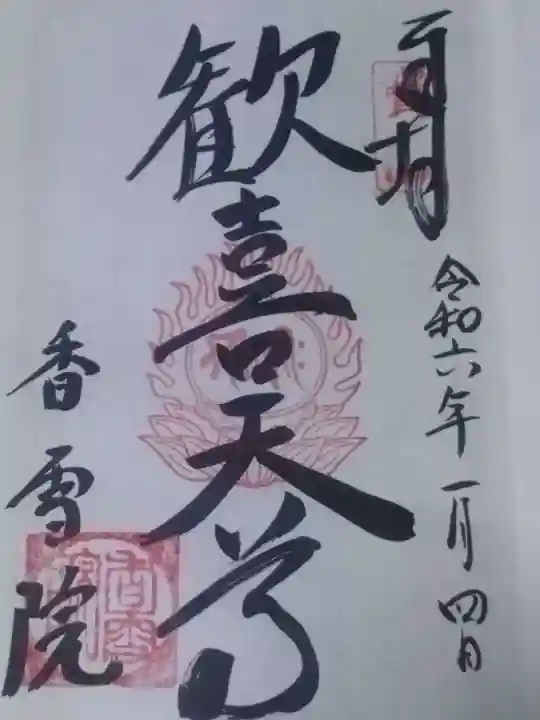 奉拝
令和六年一月四日
歓喜天尊
香雪院